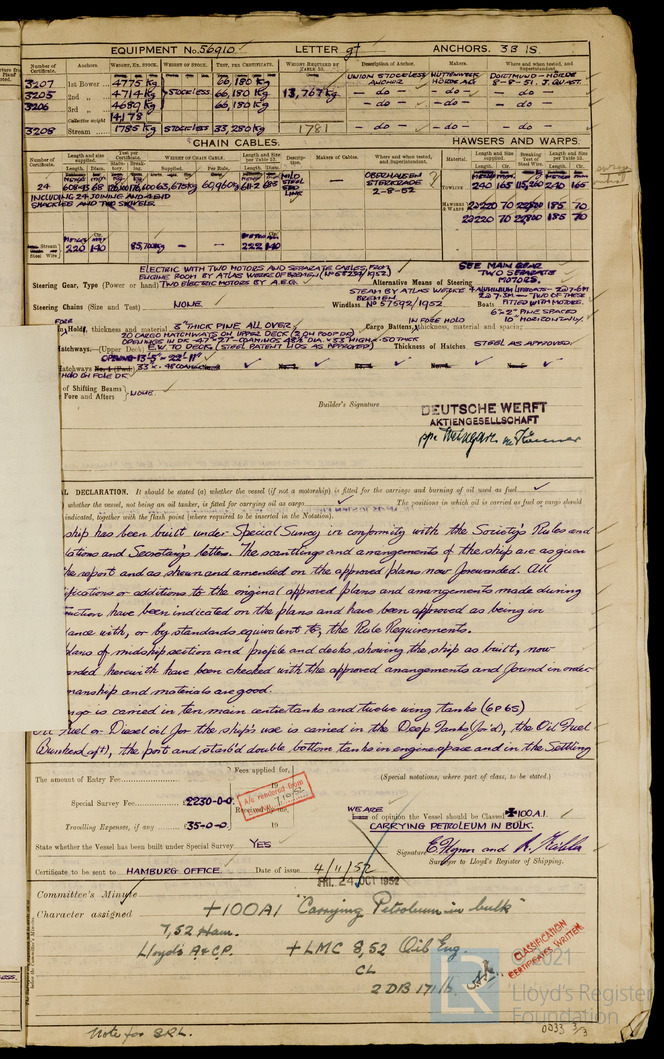 EQUIPMENT No. 56910 LETTER gt ANCHORS. 3 B 1S.
Number of Certificate. Anchors. WEIGHT, EX. STOCK. WEIGHT OF STOCK. TEST, PER CERTIFICATE. WEIGHT REQUIRED BY TABLE 53. Description of Anchor. Makers. Where and when tested, and Superintendent.
3207 1st Bower 4775 Kg 66,180 Kg UNION STOCKLESS ANCHOR HÜTTENWERK HÖRDE A.G. DORTMUND-HÖRDE 8-8-51 J. QUAST.
3205 2nd „ 4714 Kg STOCKLESS 66,180 Kg 13,767 Kg — do — — do — — do —
3206 3rd „ 4689 Kg 66,180 Kg — do — — do — — do —
Collective weight 14178
3208 Stream 1785 Kg STOCKLESS 33,280 Kg 1781 — do — — do — — do —
CHAIN CABLES. HAWSERS AND WARPS.
Number of Certificate. Length and size supplied. Test per Certificate. WEIGHT OF CHAIN CABLE. Length and Size per Table 53. Description. Makers of Cables. Where and when tested, and Superintendent. Material. Length and size supplied. Breaking Test of Steel Wire. Length and Size per Table 53.
Length. Diam. Supplied. Per Rule. Length. Diam. Length. Cir. Length. Cir.
24 608·43 68 63,675 Kg 60,960 Kg 611·2 MILD STEEL LINK OBERHAUSEN STERKRADE 2-8-52 TOWLINE 240 165 115,260 240 165
INCLUDING 24 JOINING AND 4 END SHACKLES AND TWO SWIVELS HAWSERS & WARPS 70 185 70
2x220 70 185 70
Stream Steel Wire 220 140 85,700 Kg — — 222 140
ELECTRIC WITH TWO MOTORS AND SEPARATE CABLES FROM ENGINE ROOM BY ATLAS WERKE BREMEN (No 58292/1952) SEE MAIN GEAR TWO SEPARATE MOTORS.
Steering Gear, Type (Power or hand) TWO ELECTRIC MOTORS BY A.E.G. Alternative Means of Steering
STEAM BY ATLAS WERKE BREMEN
Steering Chains (Size and Test) NONE. Windlass No 57692/1952 Boats FITTED WITH MOTORS.
6"x2" PINE SPACED 10" HORIZONTALLY.
FORE Hold, thickness and material 3" THICK PINE ALL OVER. IN FORE HOLD Cargo Battens, thickness, material and spacing
20 CARGO HATCHWAYS ON UPPER DECK (2 ON POOP DK)
OPENINGS IN DK
atchways.—(Upper Deck) E.W. TO DECK. (STEEL PATENT LIDS AS APPROVED) Thickness of Hatches STEEL AS APPROVED.
OPENING 13'-5" x 22'-11"
HOLD ON FOLE DK
of Shifting Beams Fore and Afters } NONE.
Builder's Signature DEUTSCHE WERFT
AKTIENGESELLSCHAFT
L DECLARATION. It should be stated (a) whether the vessel (if not a motorship) is fitted for the carriage and burning of oil used as fuel
whether the vessel, not being an oil tanker, is fitted for carrying oil as cargo The positions in which oil is carried as fuel or cargo should
indicated, together with the flash point (where required to be inserted in the Notation).
ship has been built under Special Survey in conformity with the Society's Rules and
lations and Secretary's letters. The scantlings and arrangements of the ship are as given
he report and as shewn and amended on the approved plans now forwarded. All
ifications or additions to the original approved plans and arrangements made during
uction have been indicated on the plans and have been approved as being in
ance with, or by standards equivalent to, the Rule Requirements.
lans of midship section and profile and decks showing the ship as built, now
rded herewith have been checked with the approved arrangements and found in order
manship and materials are good.
go is carried in ten main centre tanks and twelve wing tanks (6P 6S)
Oil Fuel or Diesel oil for the ship's use is carried in the Deep Tanks (for'd), the Oil Fuel
Bunkers (aft), the port and starb'd double bottom tanks in engine space and in the Settling
The amount of Entry Fee Fees applied for, (Special notations, where part of class, to be stated.)
19
Special Survey Fee £230-0-0 A/c rendered from Received by me,
WE ARE of opinion the Vessel should be Classed ✠100A.1.
Travelling Expenses, if any £35-0-0. 19 CARRYING PETROLEUM IN BULK.
State whether the Vessel has been built under Special Survey YES Signature
Surveyor to Lloyd's Register of Shipping.
Certificate to be sent to HAMBURG OFFICE. Date of issue 4/11/52
FRI. 24 OCT 1952
Committee's Minute
Character assigned +100A1 "Carrying Petroleum in bulk"
7,52 Ham.
Lloyd's A & C.P. +LMC 8,52 Oil Eng.
CL
2 DB 171 lb.
CLASSIFICATION CERTIFICATES WRITTEN
© 2021
LR Lloyd's Register Foundation
Note for S.R.L.
0033 3/3